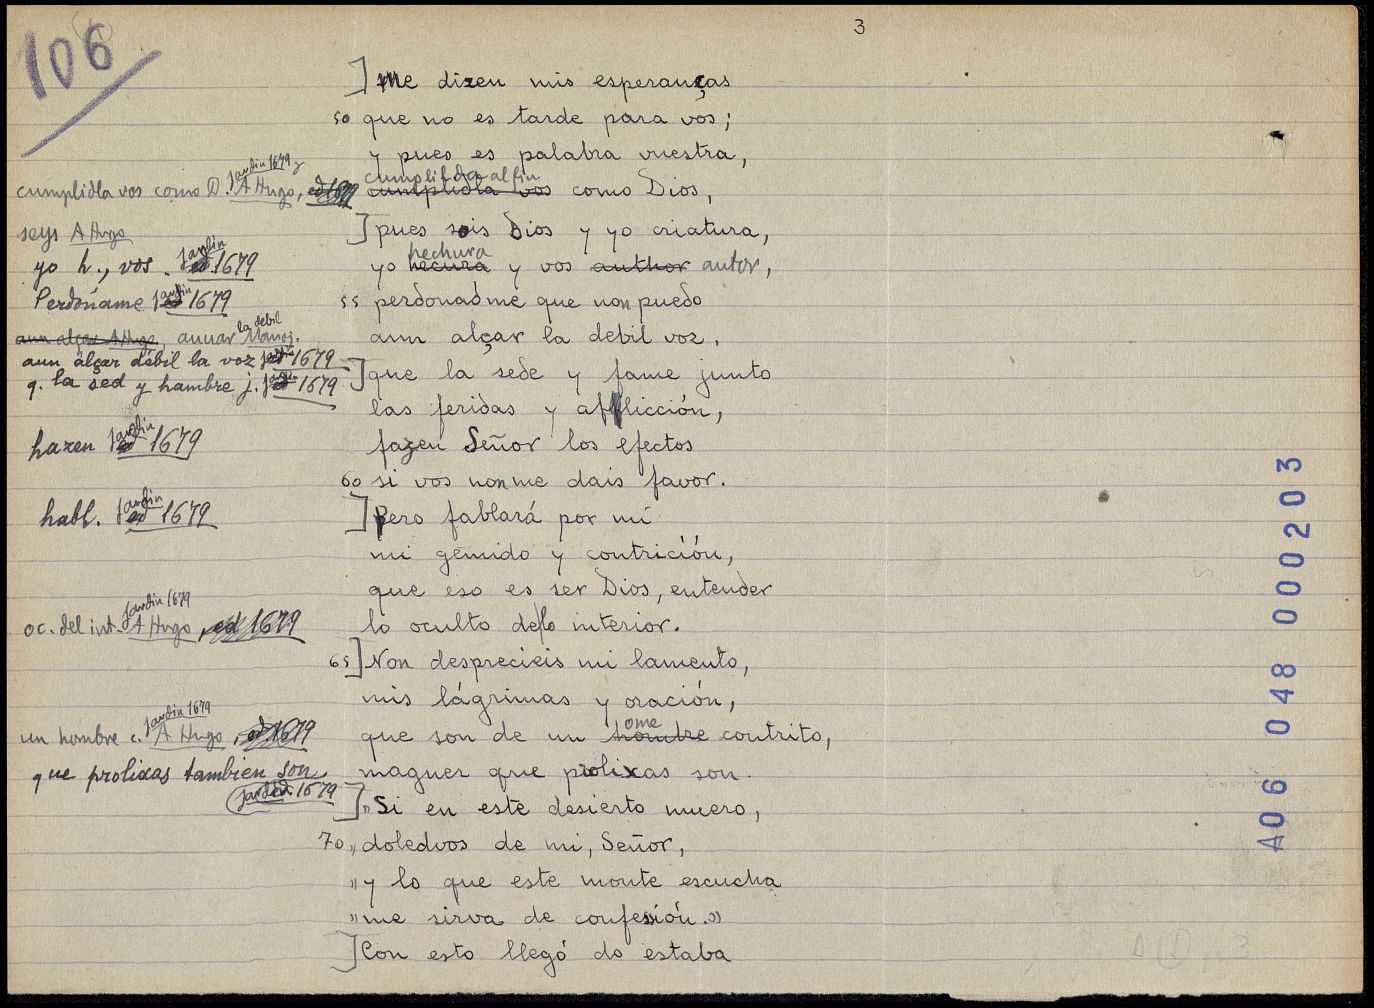 3
106
] Me dizen mis esperanças
50 que no es tarde para vos;
y pues es palabra vuestra,
jardin 1679 y
cumplidla vos como D. A Hugo, ed 1679
cumplidda al fin
cumplidla vos como Dios,
seys A Hugo
] pues sois Dios y yo criatura,
yo h., vos. jardin ed 1679
hechura
yo hecura y vos author autor,
Perdoname jardin ed 1679
55 perdonadme que non puedo
aun alçar A Hugo, anuar la debil Manoj.
aun alçar la debil voz,
aun alçar débil la voz jardin ed 1679
] que la sede y fame junto
q. la sed y hambre j. jardin ed 1679
las feridas y aflicción,
hazen jardin ed 1679
fazen Señor los efectos
60 si vos non me dais favor.
habl. jardin ed 1679
] Pero fablará por mí
mi gemido y contrición,
que eso es ser Dios, entender
jardin 1679
oc. del int. A Hugo, ed 1679
lo oculto de lo interior.
65 ] Non despreciéis mi lamento,
mis lágrimas y oración,
jardin 1679
un hombre c. A Hugo, ed 1679
ome
que son de un hombre contrito,
que prolixas tambien son
jardin ed. 1679
maguer que prolixas son.
] "Si en este desierto muero,
70 " doledvos de mi, Señor,
" y lo que este monte escucha
" me sirva de confesión."
] Con esto llegó do estaba
406 048 000203